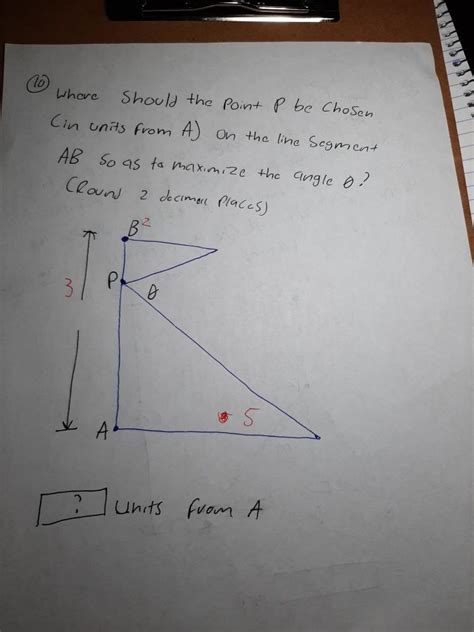 10
Where Should the Point P be Chosen
(in units from A) on the line Segment
AB So as to maximize the angle θ?
(Round 2 decimal Places)
B 2
P θ
3
A 5
? Units from A